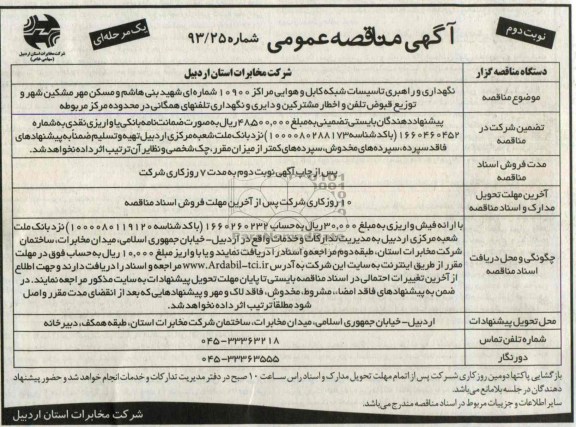 نوبت دوم
آگهی مناقصه عمومی شماره ۹۳/۲۵
یک مرحله‌ای
شرکت مخابرات استان اردبیل
(سهامی خاص)
دستگاه مناقصه گزار
شرکت مخابرات استان اردبیل
موضوع مناقصه
نگهداری و راهبری تاسیسات شبکه کابل و هوایی مراکز ۱۰۹۰۰ شماره‌ای شهید بنی هاشم و مسکن مهر مشکین شهر و
توزیع قبوض تلفن و اخطار مشترکین و دایری و نگهداری تلفنهای همگانی در محدوده مرکز مربوطه
تضمین شرکت در
مناقصه
پیشنهاد دهندگان بایستی تضمینی به مبلغ ۴۸۵۰۰,۰۰۰ ریال به صورت ضمانت نامه بانکی یا واریز نقدی به شماره
۱۶۶۰۴۶۰۴۵۲ (باکد شناسه ۱۰۰۰۰۸۰۲۸۸۱۷۳) نزد بانک ملت شعبه مرکزی اردبیل تهیه و تسلیم ضمناً به پیشنهادهای
فاقد سپرده، سپرده‌های مخدوش، سپرده‌های کمتر از میزان مقرر، چک شخصی و نظایر آن ترتیب اثر داده نخواهد شد.
مدت فروش اسناد
مناقصه
پس از چاپ آگهی نوبت دوم به مدت ۷ روز کاری شرکت
آخرین مهلت تحویل
مدارک و اسناد مناقصه
۱۰ روز کاری شرکت پس از آخرین مهلت فروش اسناد مناقصه
چگونگی و محل دریافت
اسناد مناقصه
با ارائه فیش واریزی به مبلغ ۳۰,۰۰۰ ریال به حساب ۱۶۶۰۲۶۰۲۳۲ (باکد شناسه ۱۰۰۰۰۸۰۱۱۹۱۲۰) نزد بانک ملت
شعبه مرکزی اردبیل به مدیریت تدارکات و خدمات واقع در اردبیل- خیابان جمهوری اسلامی، میدان مخابرات، ساختمان
شرکت مخابرات استان، طبقه دوم مراجعه و اسناد را دریافت نمایند و یا با واریز مبلغ ۱۰,۰۰۰ ریال به حساب فوق در مهلت
مقرر از طریق اینترنت به سایت این شرکت به آدرس www.Ardabil-tci.ir مراجعه و اسناد را دریافت دارند و جهت اطلاع
از آخرین تغییرات احتمالی در اسناد مناقصه بایستی تا پایان مهلت تحویل پیشنهادات به سایت مذکور مراجعه نمایند. در
ضمن به پیشنهادهای فاقد امضاء، مشروط، مخدوش، فاقد لاک و مهر و پیشنهادهایی که بعد از انقضای مدت مقرر واصل
شود مطلقاً ترتیب اثر داده نخواهد شد.
محل تحویل پیشنهادات
اردبیل- خیابان جمهوری اسلامی، میدان مخابرات، ساختمان شرکت مخابرات استان، طبقه همکف، دبیرخانه
شماره تلفن تماس
۰۴۵-۳۳۳۶۳۲۱۸
دورنگار
۰۴۵-۳۳۳۶۳۵۵۵
بازگشایی پاکتها دومین روز کاری شرکت پس از اتمام مهلت تحویل مدارک و اسناد راس ساعت ۱۰ صبح در دفتر مدیریت تدارکات و خدمات انجام خواهد شد و حضور پیشنهاد
دهندگان در جلسه بلامانع می‌باشد.
سایر اطلاعات و جزییات مربوط در اسناد مناقصه مندرج می‌باشد.
شرکت مخابرات استان اردبیل